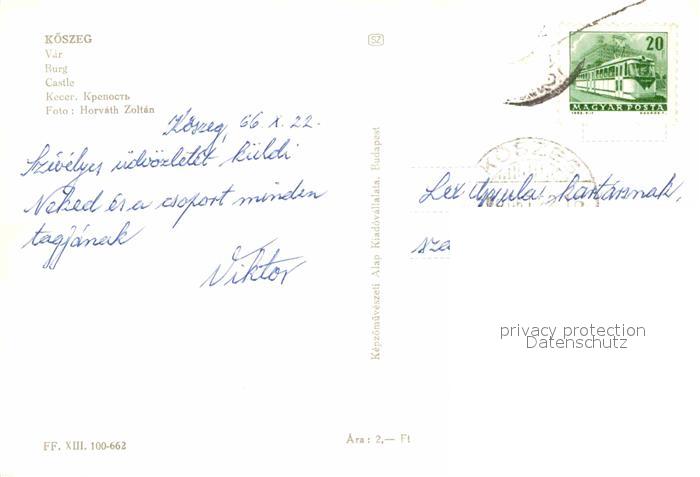 KŐSZEG
Vár
Burg
Castle
Кесег. Крепость
Foto : Horváth Zoltán
SZ
20
MAGYAR POSTA
Kőszeg, 66. X. 22.
Szívélyes üdvözletét küldi
Neked és a csoport minden
tagjának
Viktor
Képzőművészeti Alap Kiadóvállalata, Budapest
KŐSZEG
Lex Gyula kartársnak,
sza
privacy protection
Datenschutz
FF. XIII. 100-662
Ára : 2,— Ft